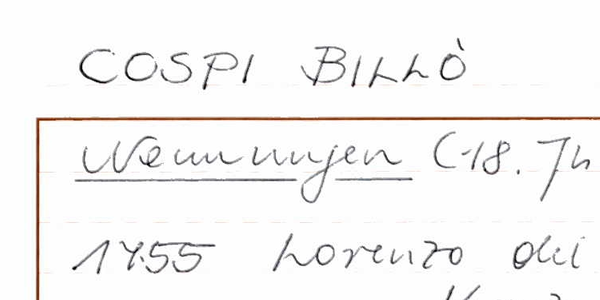 COSPI BILLÒ
Nennungen (-18. Jh
1455 Lorenzo dei